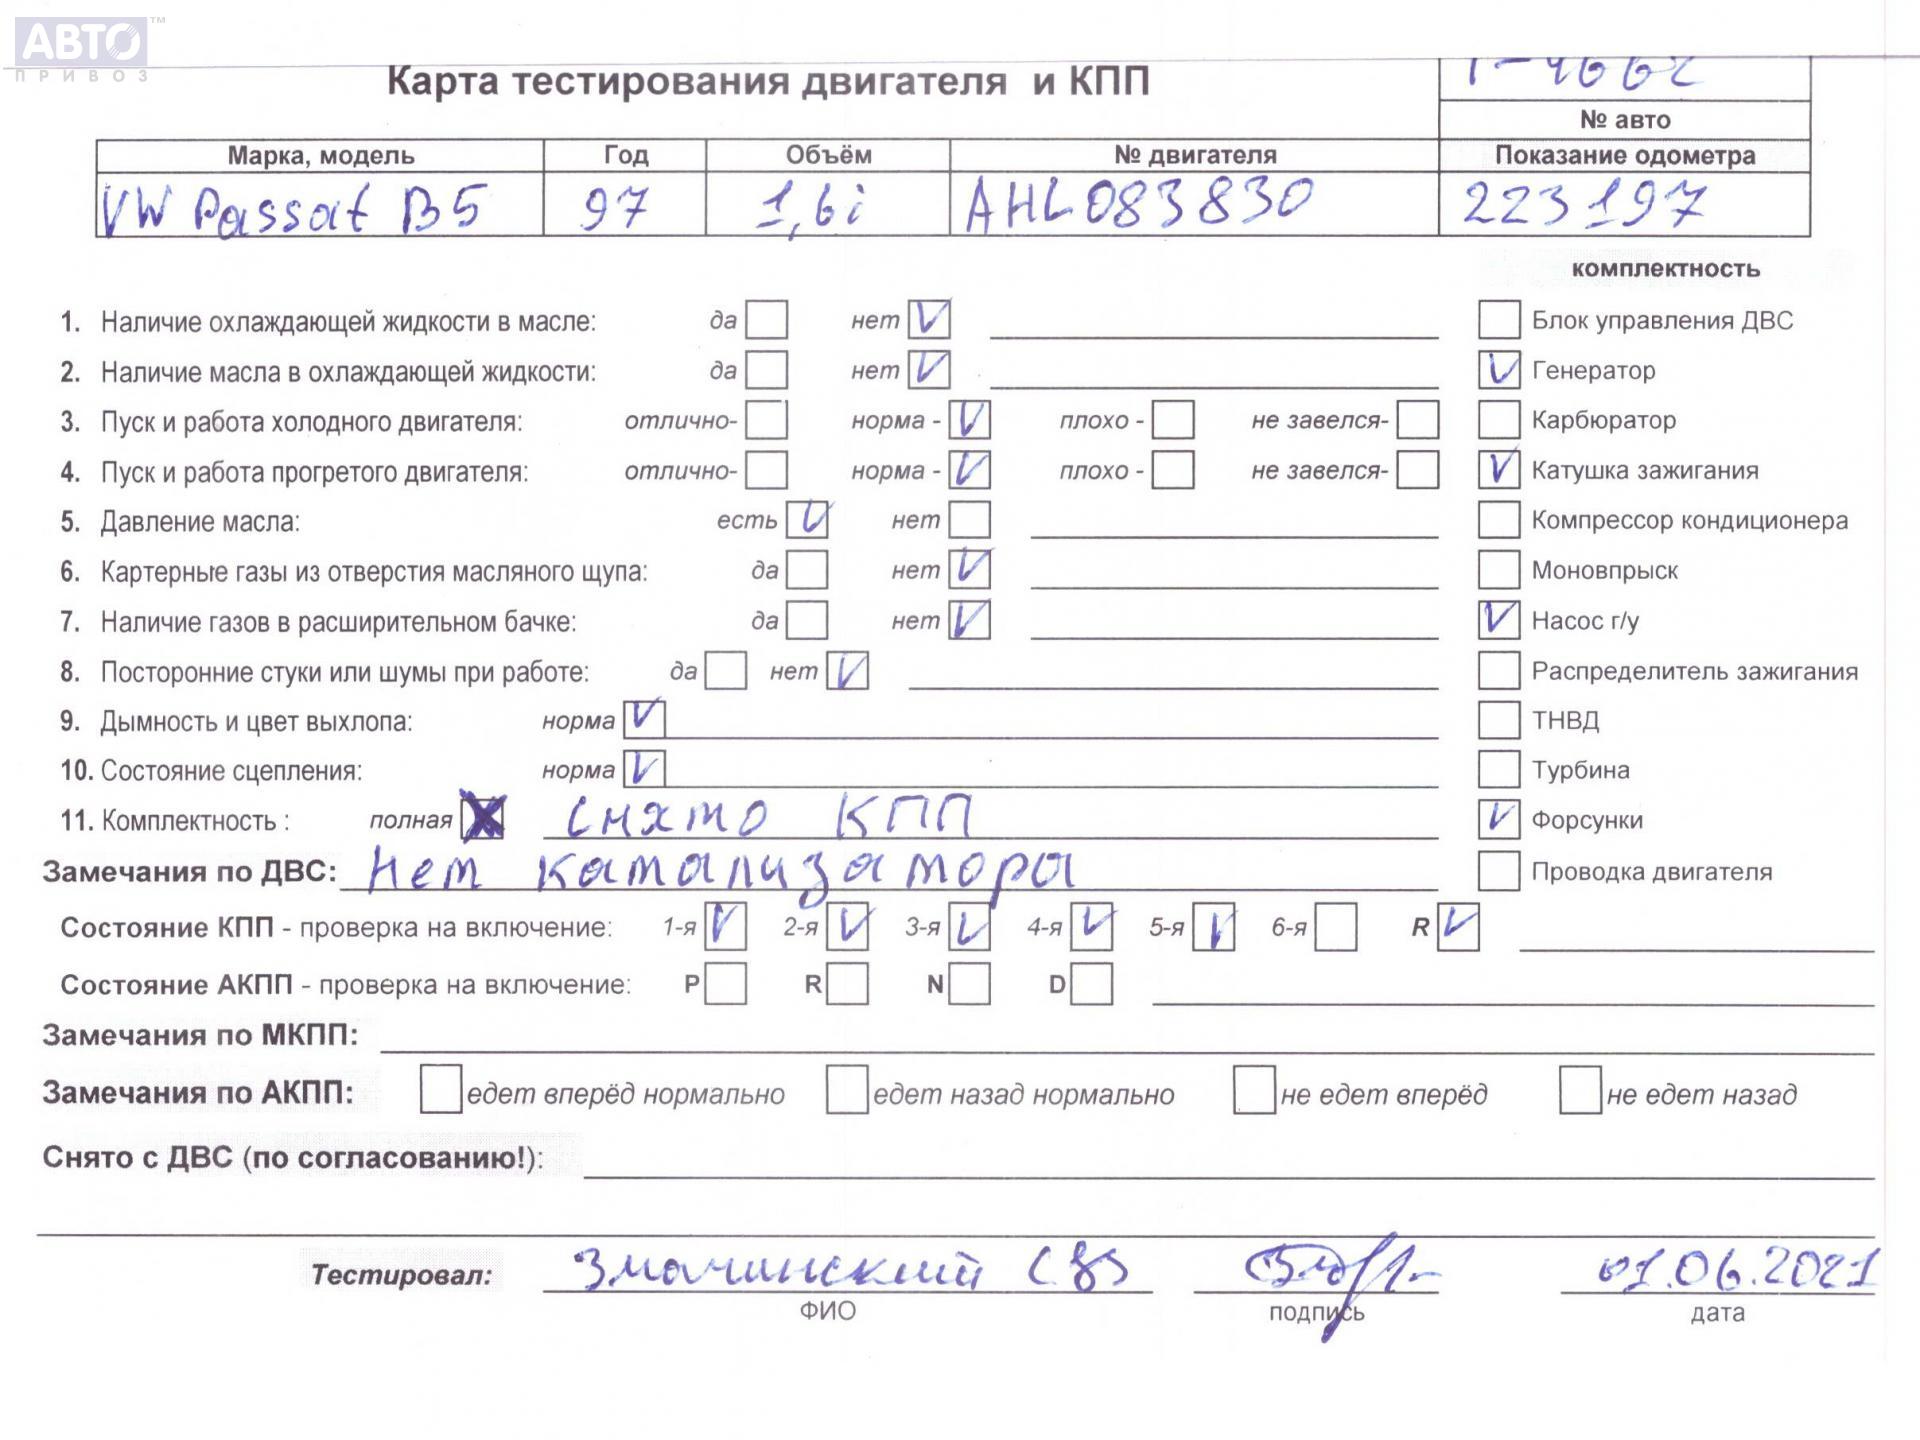 АВТО™
ПРИВОЗ
Карта тестирования двигателя и КПП
№ авто
Марка, модель Год Объём № двигателя Показание одометра
VW Passat B5 97 1,6i AHL083830 223197
комплектность
1. Наличие охлаждающей жидкости в масле: да нет V Блок управления ДВС
2. Наличие масла в охлаждающей жидкости: да нет V V Генератор
3. Пуск и работа холодного двигателя: отлично- норма - V плохо - не завелся- Карбюратор
4. Пуск и работа прогретого двигателя: отлично- норма - V плохо - не завелся- V Катушка зажигания
5. Давление масла: есть V нет Компрессор кондиционера
6. Картерные газы из отверстия масляного щупа: да нет V Моновпрыск
7. Наличие газов в расширительном бачке: да нет V V Насос г/у
8. Посторонние стуки или шумы при работе: да нет V Распределитель зажигания
9. Дымность и цвет выхлопа: норма V ТНВД
10. Состояние сцепления: норма V Турбина
11. Комплектность : полная X снято КПП V Форсунки
Замечания по ДВС: Нет катализатора Проводка двигателя
Состояние КПП - проверка на включение: 1-я V 2-я V 3-я V 4-я V 5-я V 6-я R V
Состояние АКПП - проверка на включение: P R N D
Замечания по МКПП:
Замечания по АКПП: едет вперёд нормально едет назад нормально не едет вперёд не едет назад
Снято с ДВС (по согласованию!):
Тестировал: 01.06.2021
ФИО подпись дата